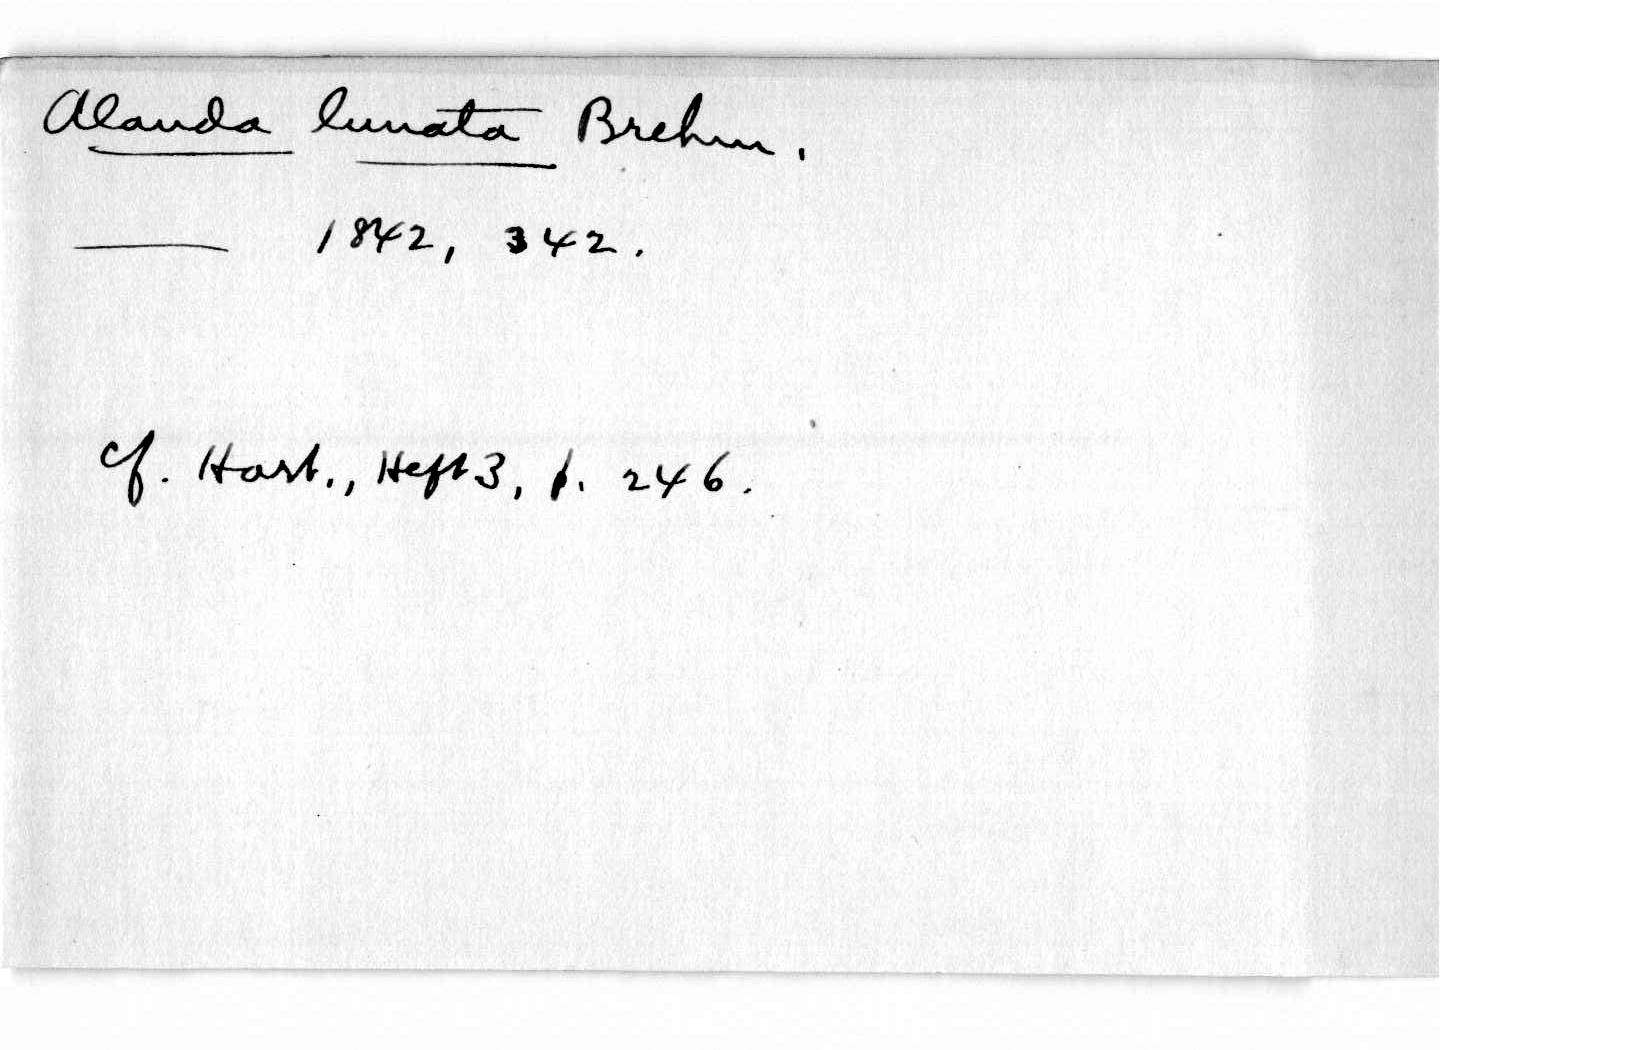 Alauda lunata Brehm.
—— 1842, 342.
cf. Hart., Heft 3, p. 246.